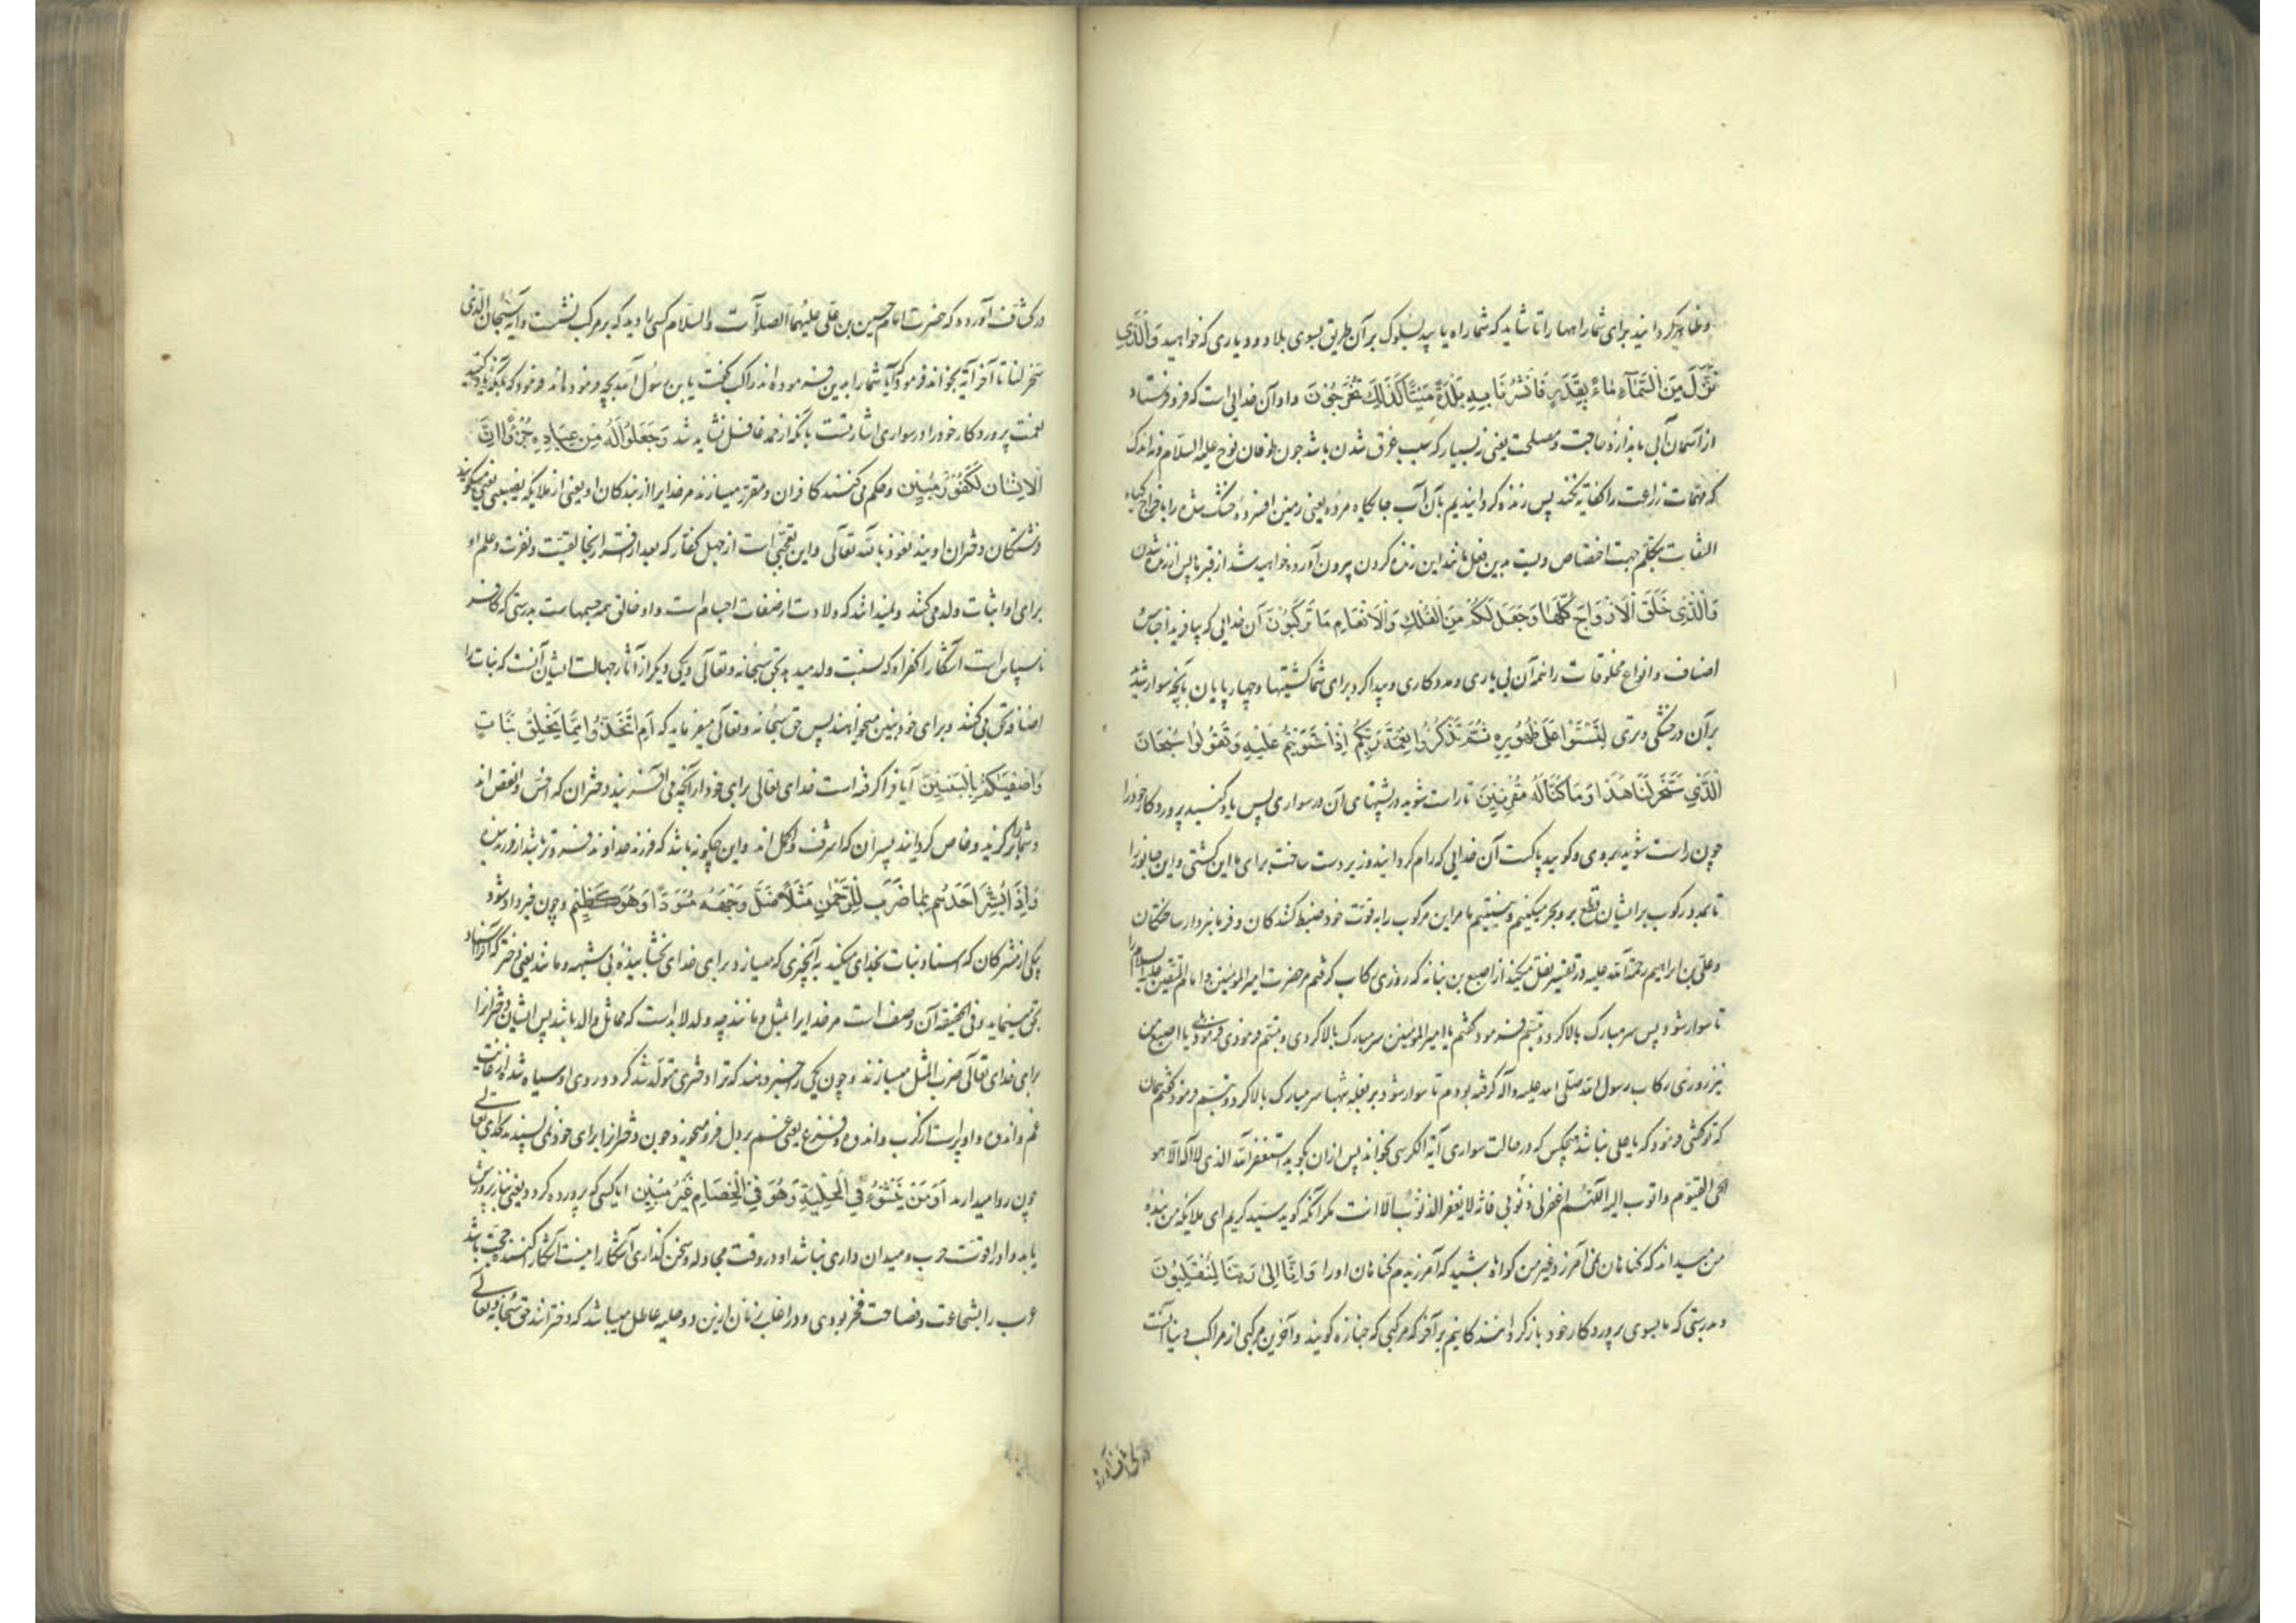 و ظاهر گردانید برای شما راهها را تا شاید که شما راه یابید بسلوک بر آن طریق بسوی بلاد و دیاری که خواهید وَالَّذِي
نَزَّلَ مِنَ السَّمَاءِ مَاءً بِقَدَرٍ فَأَنْشَرْنَا بِهِ بَلْدَةً مَيْتًا كَذَلِكَ تُخْرَجُونَ و او آن خدایی است که فرو فرستاد
از آسمان آبی باندازه حاجت و مصلحت یعنی نه بسیار که سبب غرق شدن باشد چون طوفان نوح علیه السلام و نه اندک
که مهمات زراعت را کفایة نکند پس زنده گردانیدیم بآن آب جایگاه مرده یعنی زمین افسرده و خشک شده را باخراج گیاه
التفات بتکلم جهت اختصاص ویست بدین فعل مانند این زنده کردن بیرون آورده خواهید شد از قبرها پس از زنده شدن
وَالَّذِي خَلَقَ الْأَزْوَاجَ كُلَّهَا وَجَعَلَ لَكُمْ مِنَ الْفُلْكِ وَالْأَنْعَامِ مَا تَرْكَبُونَ آن خدایی که بیافرید اجناس
اصناف و انواع مخلوقات را همه آن بی یاری و مددکاری و پیدا کرد برای شما کشتیها و چهارپایان آنچه سوار شوید
بر آن در خشکی و تری لِتَسْتَوُوا عَلَى ظُهُورِهِ ثُمَّ تَذْكُرُوا نِعْمَةَ رَبِّكُمْ إِذَا اسْتَوَيْتُمْ عَلَيْهِ وَتَقُولُوا سُبْحَانَ
الَّذِي سَخَّرَ لَنَا هَذَا وَمَا كُنَّا لَهُ مُقْرِنِينَ تا راست شوید در پشتهای آن در سواری پس یاد کنید پروردگار خود را
چون راست شوید بر وی و گویید پاکست آن خدایی که رام گردانید و زیر دست ساخت برای ما این کشتی و این جانور را
تا بمدد رکوب بر ایشان قطع بر و بحر میکنیم و نیستیم ما مر این مرکوب را بقوت خود ضبط کنندکان و فرمانبردار ساختکان
و علی بن ابراهیم رحمة الله علیه در تفسیر نقل میکند از اصبغ بن نباته که روزی رکاب گرفتم مر حضرت امیرالمؤمنین و امام المتقین علیه السلام را
تا سوار شود پس سر مبارک بالا کرد و تبسم فرمود گفتم یا امیرالمؤمنین سر مبارک بالا کردی و تبسم فرمودی فرمود یا اصبغ من
نیز روزی رکاب رسول الله صلی الله علیه وآله گرفته بودم تا سوار شود بر بغله شهبا سر مبارک بالا کرد و تبسم فرمود گفتم همان
که تو گفتی فرمود که یا علی نباشد هیچکس که در حالت سواری آیة الکرسی بخواند پس از آن بگوید استغفر الله الذی لا اله الا هو
الحی القیوم و اتوب الیه اللهم اغفر لی ذنوبی فانه لا یغفر الذنوب الا انت مگر آنکه گوید سید کریم ای ملائکه من بنده
من میداند که گناهان نمی آمرزد غیر من گواه باشید که آمرزیدم گناهان او را وَإِنَّا إِلَى رَبِّنَا لَمُنْقَلِبُونَ
و بدرستی که ما بسوی پروردگار خود باز گردانندکانیم بر آخر که مرکبی که جنازه گویند و آخرین مرکبی از مراکب دنیا آنست
در کشاف آورد
در کشاف آورده که حضرت امام حسین بن علی علیهما الصلاة و السلام کسی را دید که بر مرکب نشست و آیه سبحان الذی
سخر لنا تا آخر آیه بخواند فرمود که آیا شما را بدین فرموده اند راکب گفت یا بن رسول الله بچه فرموده اند فرمود که بآنکه یاد کنید
نعمت پروردگار خود را در سواری اشارتست بآنکه از حمد غافل نشاید شد وَجَعَلُوا لَهُ مِنْ عِبَادِهِ جُزْءًا إِنَّ
الْإِنْسَانَ لَكَفُورٌ مُبِينٌ و حکم می کنند کافران و مقرر میسازند مر خدایرا از بندکان او یعنی از ملائکه نصیبی یعنی میگویند
فرشتکان دختران اویند نعوذ بالله تعالی و این تعجبی است از جهل کفار که بعد از اقرار بخالقیت و نفرت و علم او
برای او اثبات ولد می کنند و نمیدانند که ولادت از صفات اجسام است و او خالق همه جسمهاست بدرستی که کافر
ناسپاس است آشکارا کفر او که نسبت ولد میدهد بحق سبحانه و تعالی و یکی دیگر از آثار جهالت ایشان آنست که بنات را
اضافه بحق می کنند و برای خود بنین میخواهند پس حق سبحانه و تعالی میفرماید که أَمِ اتَّخَذَ مِمَّا يَخْلُقُ بَنَاتٍ
وَأَصْفَاكُمْ بِالْبَنِينَ آیا فرا گرفته است خدای تعالی برای خود از آنچه می آفریند دختران که اخس و انقص اند
و شما را برگزید و خاص گردانید بپسران که اشرف و اکمل اند و این چگونه باشد که فرزند خداوند فروتر باشد از فرزند بنده
وَإِذَا بُشِّرَ أَحَدُهُمْ بِمَا ضَرَبَ لِلرَّحْمَنِ مَثَلًا ظَلَّ وَجْهُهُ مُسْوَدًّا وَهُوَ كَظِيمٌ و چون خبر داده شود
یکی از مشرکان که اسناد بنات بخدای میکنند بآنچیزی که میسازد برای خدای بخشاینده بی شبهه و مانند یعنی دختر که آنرا اسناد
بحق مینماید و فی الحقیقه آن وصف است مر خدایرا بمثل و مانند چه ولد لابد است که مماثل والد باشد پس ایشان دختر را
برای خدای تعالی ضرب المثل میسازند و چون یکی را خبر دهند که ترا دختری متولد شد گردد روی او سیاه شده از غایت
غم و اندوه و او پر است از کرب و اندوه و فزع یعنی خشم بر دل فرو میخورد و چون دختر را برای خود نمی پسندید بخدای تعالی
چون روا میدارند أَوَمَنْ يُنَشَّأُ فِي الْحِلْيَةِ وَهُوَ فِي الْخِصَامِ غَيْرُ مُبِينٍ آیا کسی که پرورده گردد یعنی بناز پرورش
یابد و او را قوت حرب و میدان داری نباشد او در وقت مجادله و سخن گذاری آشکارا نیست آشکار کننده حجت باشد
عرب را بشجاعت و فصاحت فخر بودی و در اغلب زنان ازین دو حلیه عاطل میباشد که دخترانند حق سبحانه و تعالی